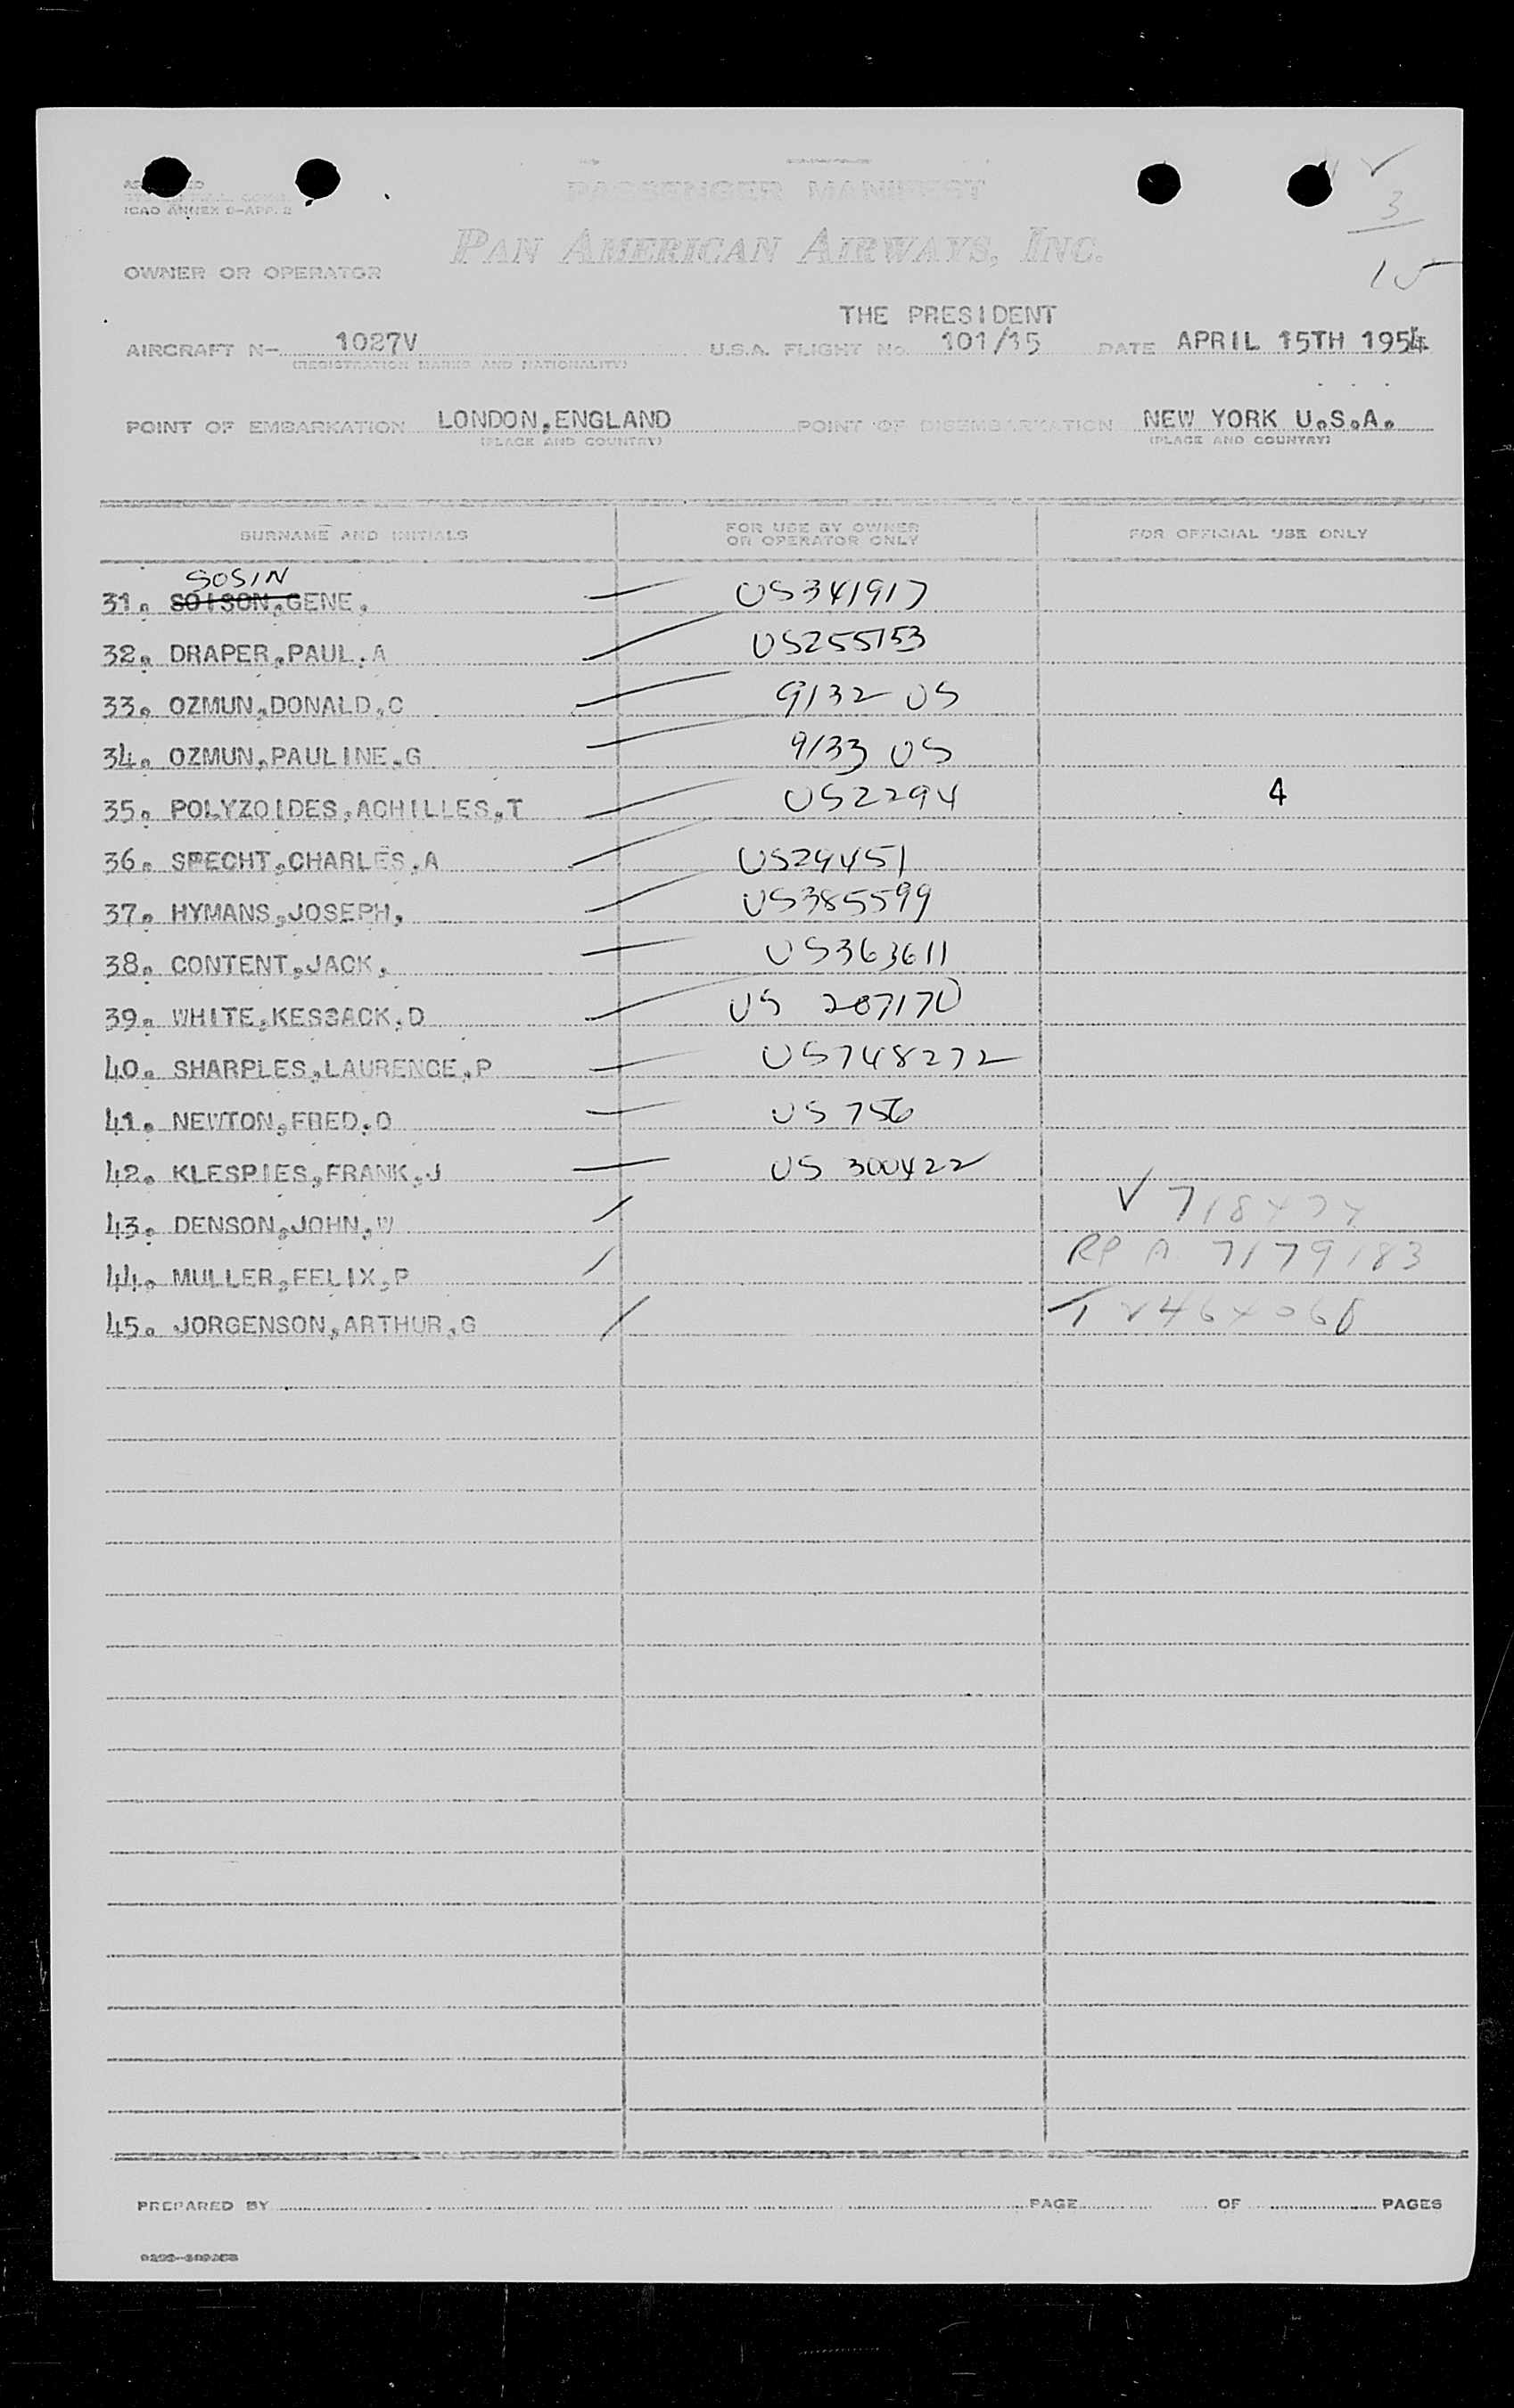 PASSENGER MANIFEST
ICAO ANNEX 9-APP. 2
3
PAN AMERICAN AIRWAYS, INC.
OWNER OR OPERATOR
15
THE PRESIDENT
AIRCRAFT N- 1027V U.S.A. FLIGHT No. 101/15 DATE APRIL 15TH 1954
(REGISTRATION MARKS AND NATIONALITY)
POINT OF EMBARKATION LONDON,ENGLAND POINT OF DISEMBARKATION NEW YORK U.S.A.
(PLACE AND COUNTRY) (PLACE AND COUNTRY)
SURNAME AND INITIALS FOR USE BY OWNER OR OPERATOR ONLY FOR OFFICIAL USE ONLY
SOSIN
31. SOISON,GENE, US341917
32. DRAPER,PAUL.A US255153
33. OZMUN,DONALD,C 9132 US
34. OZMUN,PAULINE,G 9133 US
35. POLYZOIDES,ACHILLES,T US2294 4
36. SPECHT,CHARLES,A US29451
37. HYMANS,JOSEPH, US385599
38. CONTENT,JACK, US363611
39. WHITE,KESSACK,D US 207170
40. SHARPLES,LAURENCE,P US748272
41. NEWTON,FRED.O US 756
42. KLESPIES,FRANK,J US 300422
43. DENSON,JOHN,W
44. MULLER,FELIX,P RP A 7179183
45. JORGENSON,ARTHUR,G
PREPARED BY PAGE OF PAGES